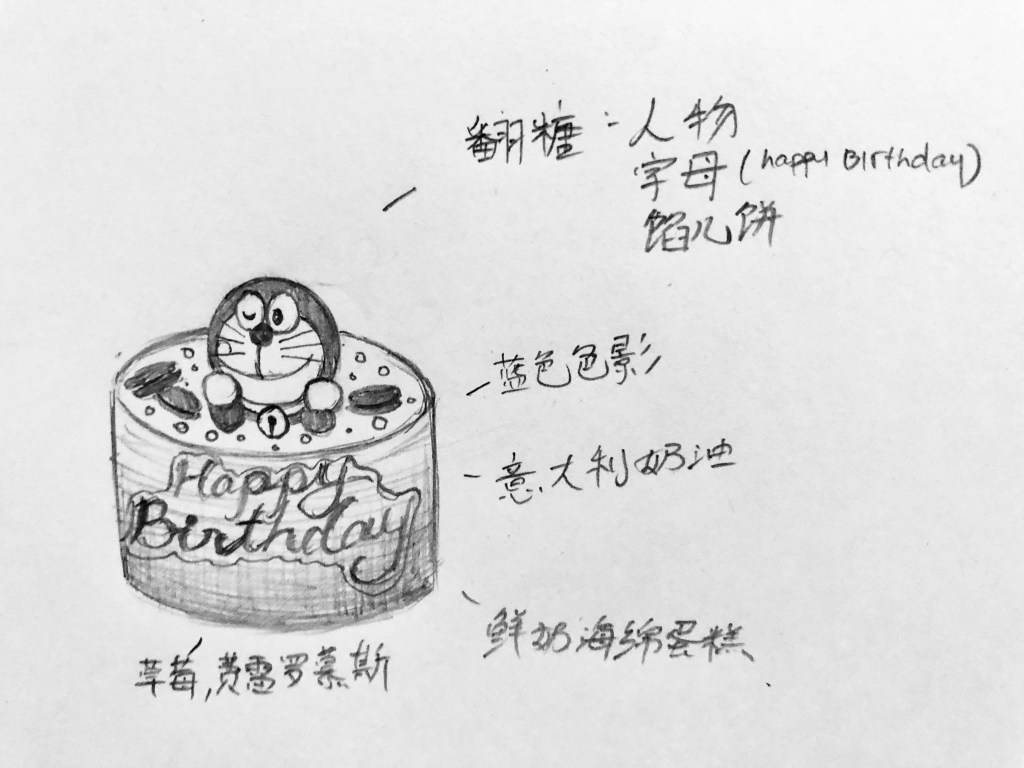 翻糖:人物
字母(happy Birthday)
馅儿饼
蓝色色影
意大利奶油
Happy
Birthday
鲜奶海绵蛋糕
草莓,费雷罗慕斯